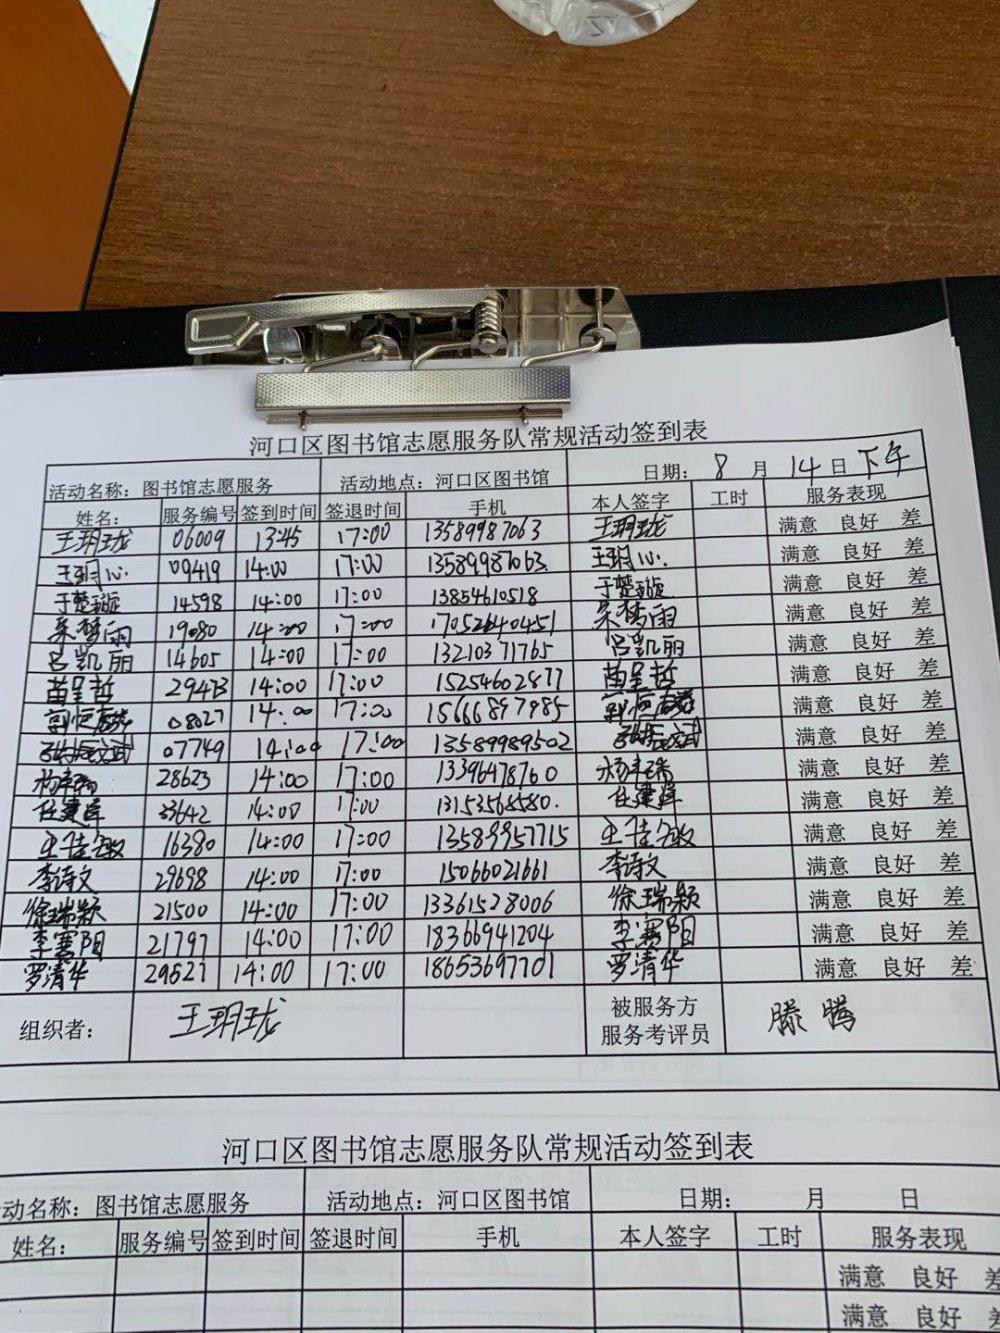 河口区图书馆志愿服务队常规活动签到表
活动名称：图书馆志愿服务 活动地点：河口区图书馆 日期： 8 月 14 日 下午
姓名： 服务编号 签到时间 签退时间 手机 本人签字 工时 服务表现
王玥珑 06009 13:45 17:00 13589987063 王玥珑 满意 良好 差
王玥心 09419 14:00 17:00 13589987063. 王玥心. 满意 良好 差
于楚璇 14598 14:00 17:00 13854610518 于楚璇 满意 良好 差
梦雨 19080 14:00 17:00 17052640451 梦雨 满意 良好 差
吕凯丽 14605 14:00 17:00 13210371765 吕凯丽 满意 良好 差
苗呈哲 29473 14:00 17:00 15254602877 苗呈哲 满意 良好 差
08027 14:00 17:00 15666897985 满意 良好 差
07749 14:00 17:00 13589989502 满意 良好 差
28623 14:00 17:00 13396478760 满意 良好 差
任建 33642 14:00 17:00 13153568580. 任建 满意 良好 差
王佳敏 16380 14:00 17:00 13589957715 王佳敏 满意 良好 差
李诗文 29698 14:00 17:00 15066021661 李诗文 满意 良好 差
徐瑞颖 21500 14:00 17:00 13361528006 徐瑞颖 满意 良好 差
李赛阳 21797 14:00 17:00 18366941204 李赛阳 满意 良好 差
罗清华 29527 14:00 17:00 18653697701 罗清华 满意 良好 差
组织者： 王玥珑 被服务方 滕腾
服务考评员
河口区图书馆志愿服务队常规活动签到表
动名称：图书馆志愿服务 活动地点：河口区图书馆 日期： 月 日
姓名： 服务编号 签到时间 签退时间 手机 本人签字 工时 服务表现
满意 良好 差
满意 良好 差